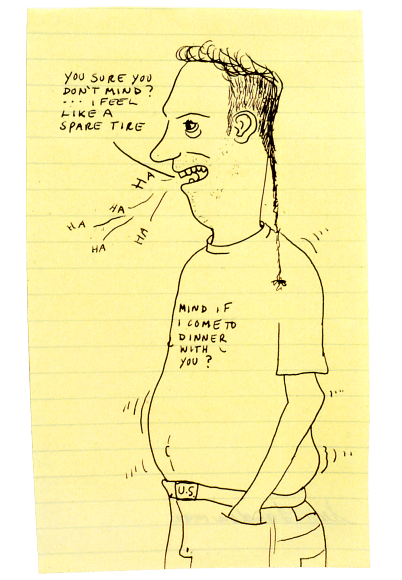 YOU SURE YOU
DON'T MIND?
... I FEEL
LIKE A
SPARE TIRE
HA
HA
HA
HA
HA
MIND IF
I COME TO
DINNER
WITH
YOU?
U.S.